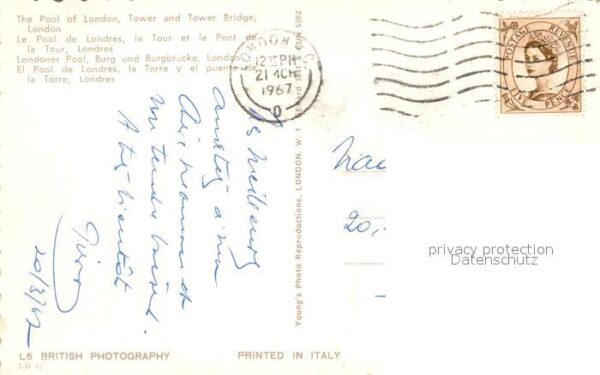 The Pool of London, Tower and Tower Bridge,
London
Le Pool de Londres, la Tour et le Pont de
la Tour, Londres
Londoner Pool, Burg und Burgbrucke, London
El Pool de Londres, la Torre y el puente de
la Torre, Londres
LONDON
12 PM
21 MCH
1967
D
POSTAGE REVENUE
FIVE PENCE
EUN 5382
Young's Photo Reproductions, LONDON. W. 1
amitiés à
un tendre baiser.
A très bientôt
20/3/67
20,
privacy protection
Datenschutz
L6 BRITISH PHOTOGRAPHY
PRINTED IN ITALY
LD 12